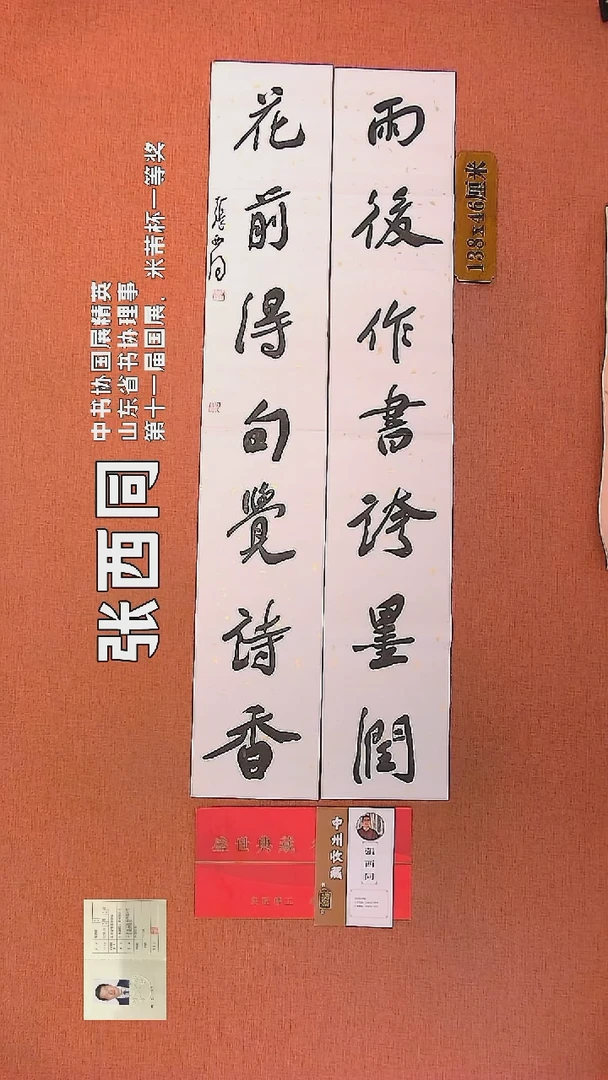 雨後作書誇墨潤
花前得句覺詩香
張西同
138x46厘米
张西同
中书协国展精英
山东省书协理事
第十一届国展、米芾杯一等奖
盛世典藏
中州收藏
張西同